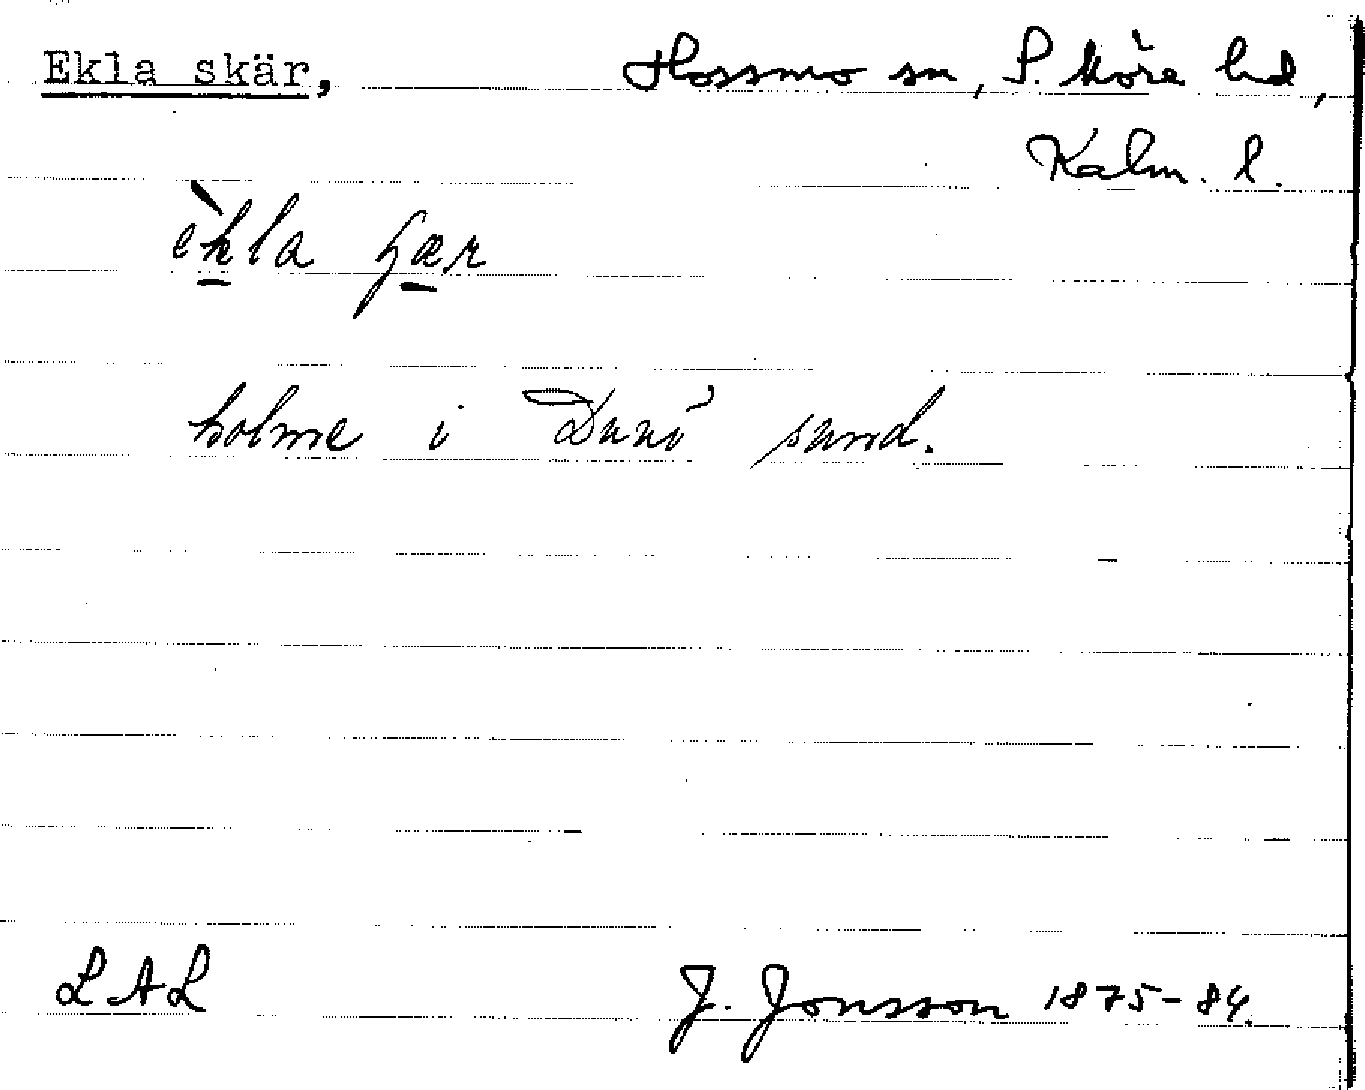 Ekla skär, Hossmo sn, S. Möre hd,
Kalm. l.
èkla ʃær
holme i Dunö sund.
LAL J. Jonsson 1875-84.